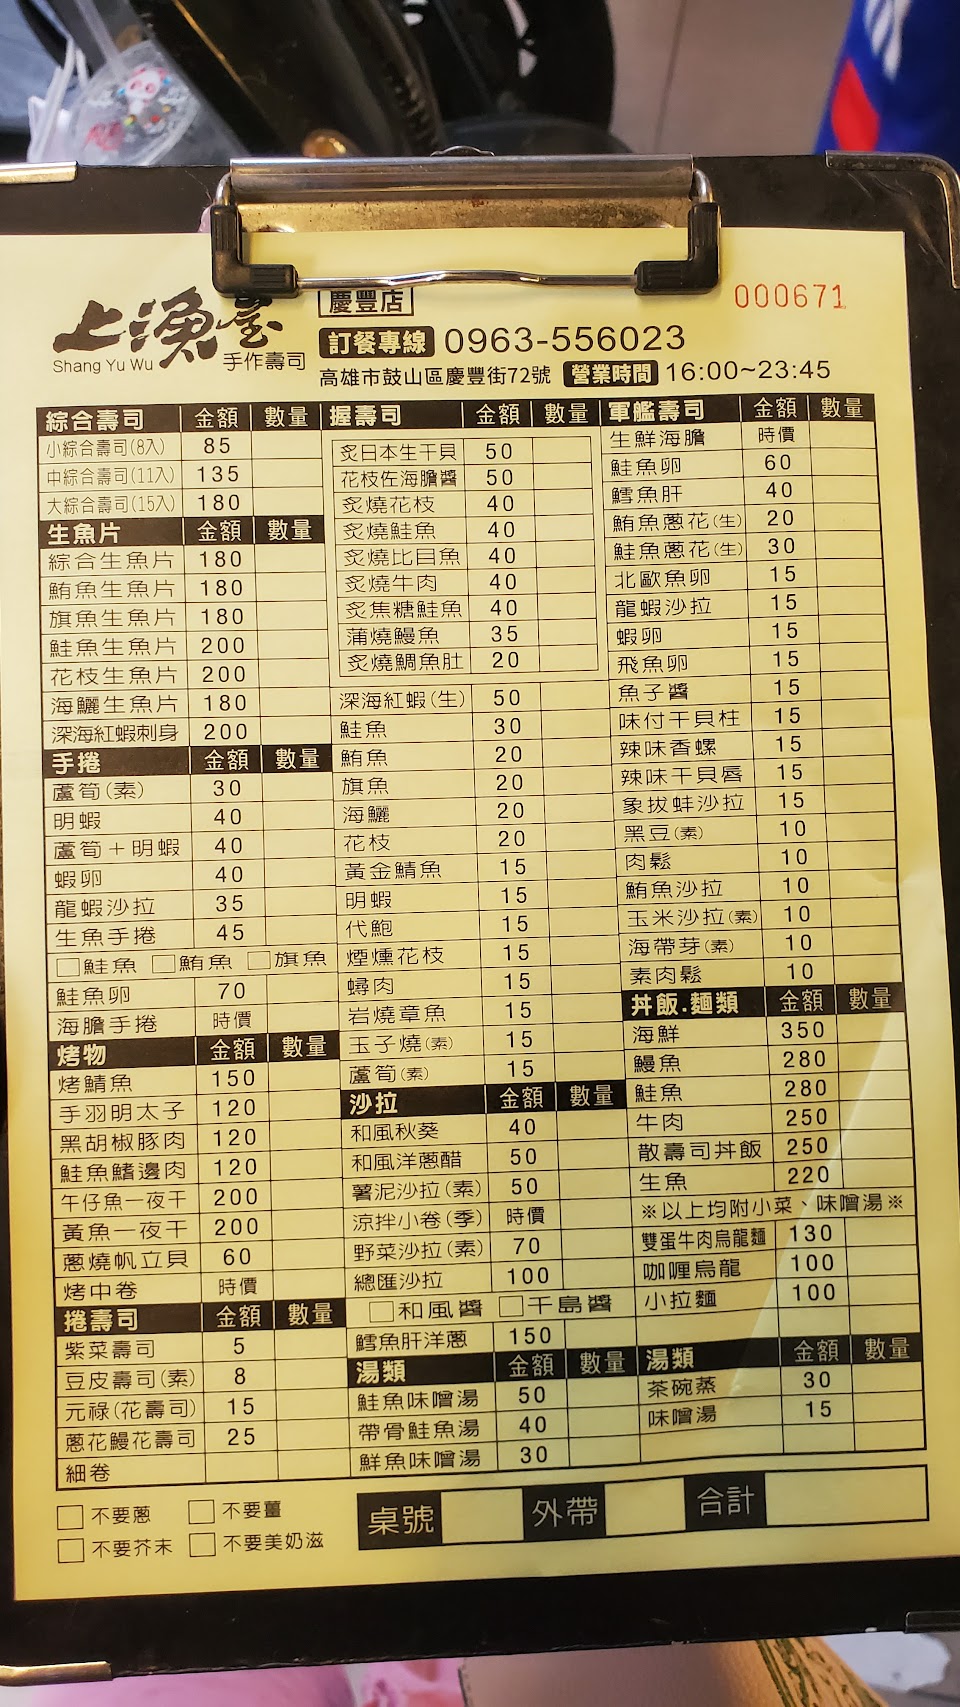 慶豐店
000671
上漁屋
Shang Yu Wu
手作壽司
訂餐專線 0963-556023
高雄市鼓山區慶豐街72號 營業時間 16:00~23:45
綜合壽司 金額 數量
小綜合壽司(8入) 85
中綜合壽司(11入) 135
大綜合壽司(15入) 180
生魚片 金額 數量
綜合生魚片 180
鮪魚生魚片 180
旗魚生魚片 180
鮭魚生魚片 200
花枝生魚片 200
海鱺生魚片 180
深海紅蝦刺身 200
手捲 金額 數量
蘆筍(素) 30
明蝦 40
蘆筍+明蝦 40
蝦卵 40
龍蝦沙拉 35
生魚手捲 45
□鮭魚 □鮪魚 □旗魚
鮭魚卵 70
海膽手捲 時價
烤物 金額 數量
烤鯖魚 150
手羽明太子 120
黑胡椒豚肉 120
鮭魚鰭邊肉 120
午仔魚一夜干 200
黃魚一夜干 200
蔥燒帆立貝 60
烤中卷 時價
捲壽司 金額 數量
紫菜壽司 5
豆皮壽司(素) 8
元祿(花壽司) 15
蔥花鰻花壽司 25
細卷
握壽司 金額 數量
炙日本生干貝 50
花枝佐海膽醬 50
炙燒花枝 40
炙燒鮭魚 40
炙燒比目魚 40
炙燒牛肉 40
炙焦糖鮭魚 40
蒲燒鰻魚 35
炙燒鯛魚肚 20
深海紅蝦(生) 50
鮭魚 30
鮪魚 20
旗魚 20
海鱺 20
花枝 20
黃金鯖魚 15
明蝦 15
代鮑 15
煙燻花枝 15
蟳肉 15
岩燒章魚 15
玉子燒(素) 15
蘆筍(素) 15
沙拉 金額 數量
和風秋葵 40
和風洋蔥醋 50
薯泥沙拉(素) 50
涼拌小卷(季) 時價
野菜沙拉(素) 70
總匯沙拉 100
□和風醬 □千島醬
鱈魚肝洋蔥 150
湯類 金額 數量
鮭魚味噌湯 50
帶骨鮭魚湯 40
鮮魚味噌湯 30
軍艦壽司 金額 數量
生鮮海膽 時價
鮭魚卵 60
鱈魚肝 40
鮪魚蔥花(生) 20
鮭魚蔥花(生) 30
北歐魚卵 15
龍蝦沙拉 15
蝦卵 15
飛魚卵 15
魚子醬 15
味付干貝柱 15
辣味香螺 15
辣味干貝唇 15
象拔蚌沙拉 15
黑豆(素) 10
肉鬆 10
鮪魚沙拉 10
玉米沙拉(素) 10
海帶芽(素) 10
素肉鬆 10
丼飯.麵類 金額 數量
海鮮 350
鰻魚 280
鮭魚 280
牛肉 250
散壽司丼飯 250
生魚 220
※以上均附小菜、味噌湯※
雙蛋牛肉烏龍麵 130
咖哩烏龍 100
小拉麵 100
湯類 金額 數量
茶碗蒸 30
味噌湯 15
□不要蔥 □不要薑
□不要芥末 □不要美奶滋
桌號 外帶 合計